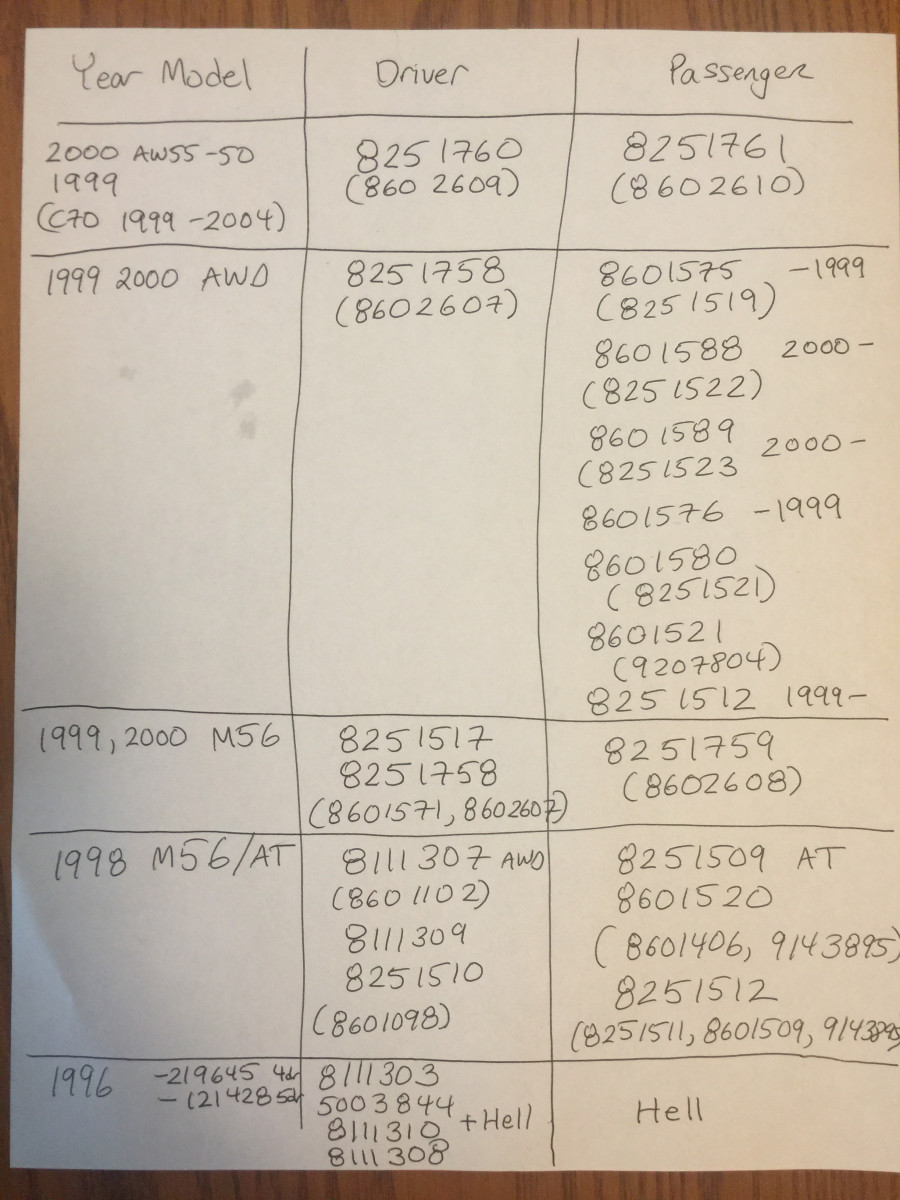 Year Model Driver Passenger
2000 AW55-50 8251760 8251761
1999 (8602609) (8602610)
(C70 1999-2004)
1999 2000 AWD 8251758 8601575 -1999
(8602607) (8251519)
8601588 2000-
(8251522)
8601589 2000-
(8251523
8601576 -1999
8601580
(8251521)
8601521
(9207804)
8251512 1999-
1999, 2000 M56 8251517 8251759
8251758 (8602608)
(8601571, 8602607)
1998 M56/AT 8111307 AWD 8251509 AT
(8601102) 8601520
8111309 (8601406, 9143895)
8251510 8251512
(8601098) (8251511, 8601509, 9143895
1996 -219645 4dr 8111303
-1214285dr 5003844
8111310 + Hell Hell
8111308